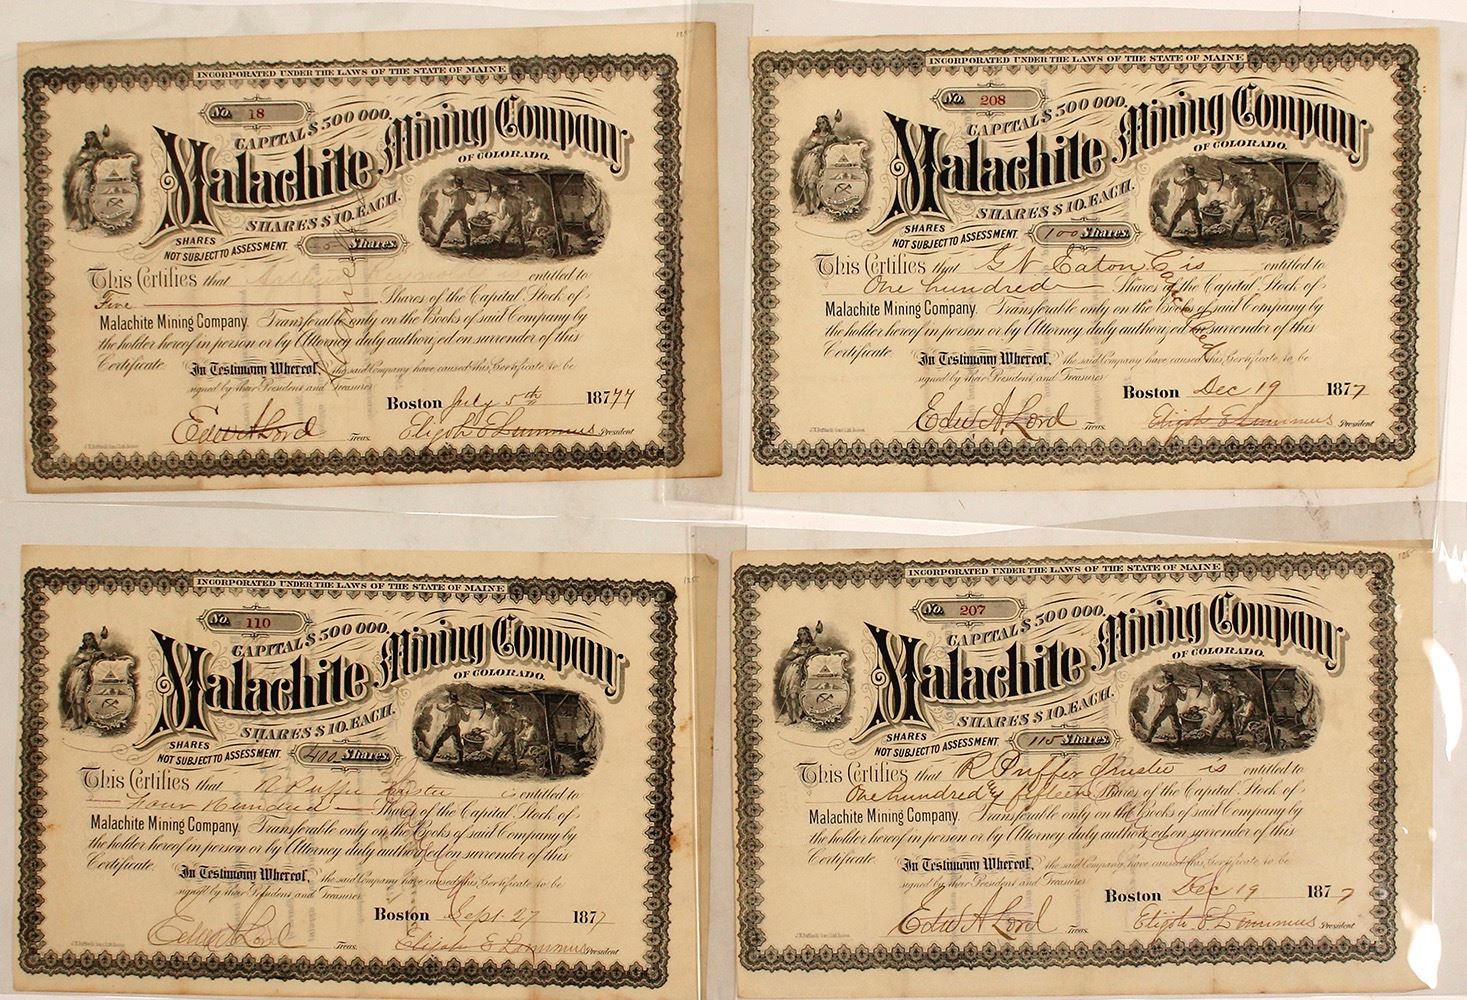 INCORPORATED UNDER THE LAWS OF THE STATE OF MAINE
No. 18
CAPITAL $500 000.
Malachite Mining Company
OF COLORADO.
SHARES $10. EACH.
SHARES
NOT SUBJECT TO ASSESSMENT.
5 Shares.
This Certifies that entitled to
Five Shares of the Capital Stock of
Malachite Mining Company. Transferable only on the Books of said Company by
the holder hereof in person or by Attorney duly authorized on surrender of this
Certificate.
In Testimony Whereof, the said Company have caused this Certificate to be
signed by their President and Treasurer
Boston July 5th 1877
Edw A Lord Treas. Elijah E Lummus President
INCORPORATED UNDER THE LAWS OF THE STATE OF MAINE
No. 208
CAPITAL $500 000.
Malachite Mining Company
OF COLORADO.
SHARES $10. EACH.
SHARES
NOT SUBJECT TO ASSESSMENT.
100 Shares.
This Certifies that G N Eaton is entitled to
One hundred Shares of the Capital Stock of
Malachite Mining Company. Transferable only on the Books of said Company by
the holder hereof in person or by Attorney duly authorized on surrender of this
Certificate.
Cancelled
In Testimony Whereof, the said Company have caused this Certificate to be
signed by their President and Treasurer
Boston Dec 19 1877
Edw A Lord Treas. Elijah E Lummus President
INCORPORATED UNDER THE LAWS OF THE STATE OF MAINE
No. 110
CAPITAL $500 000.
Malachite Mining Company
OF COLORADO.
SHARES $10. EACH.
SHARES
NOT SUBJECT TO ASSESSMENT.
400 Shares.
This Certifies that R Puffer Trustee is entitled to
Four Hundred Shares of the Capital Stock of
Malachite Mining Company. Transferable only on the Books of said Company by
the holder hereof in person or by Attorney duly authorized on surrender of this
Certificate.
In Testimony Whereof, the said Company have caused this Certificate to be
signed by their President and Treasurer
Boston Sept 27 1877
Edw A Lord Treas. Elijah E Lummus President
125
INCORPORATED UNDER THE LAWS OF THE STATE OF MAINE
No. 207
CAPITAL $500 000.
Malachite Mining Company
OF COLORADO.
SHARES $10. EACH.
SHARES
NOT SUBJECT TO ASSESSMENT.
115 Shares.
This Certifies that R Puffer Trustee is entitled to
One hundred & fifteen Shares of the Capital Stock of
Malachite Mining Company. Transferable only on the Books of said Company by
the holder hereof in person or by Attorney duly authorized on surrender of this
Certificate.
In Testimony Whereof, the said Company have caused this Certificate to be
signed by their President and Treasurer
Boston Dec 19 1877
Edw A Lord Treas. Elijah E Lummus President